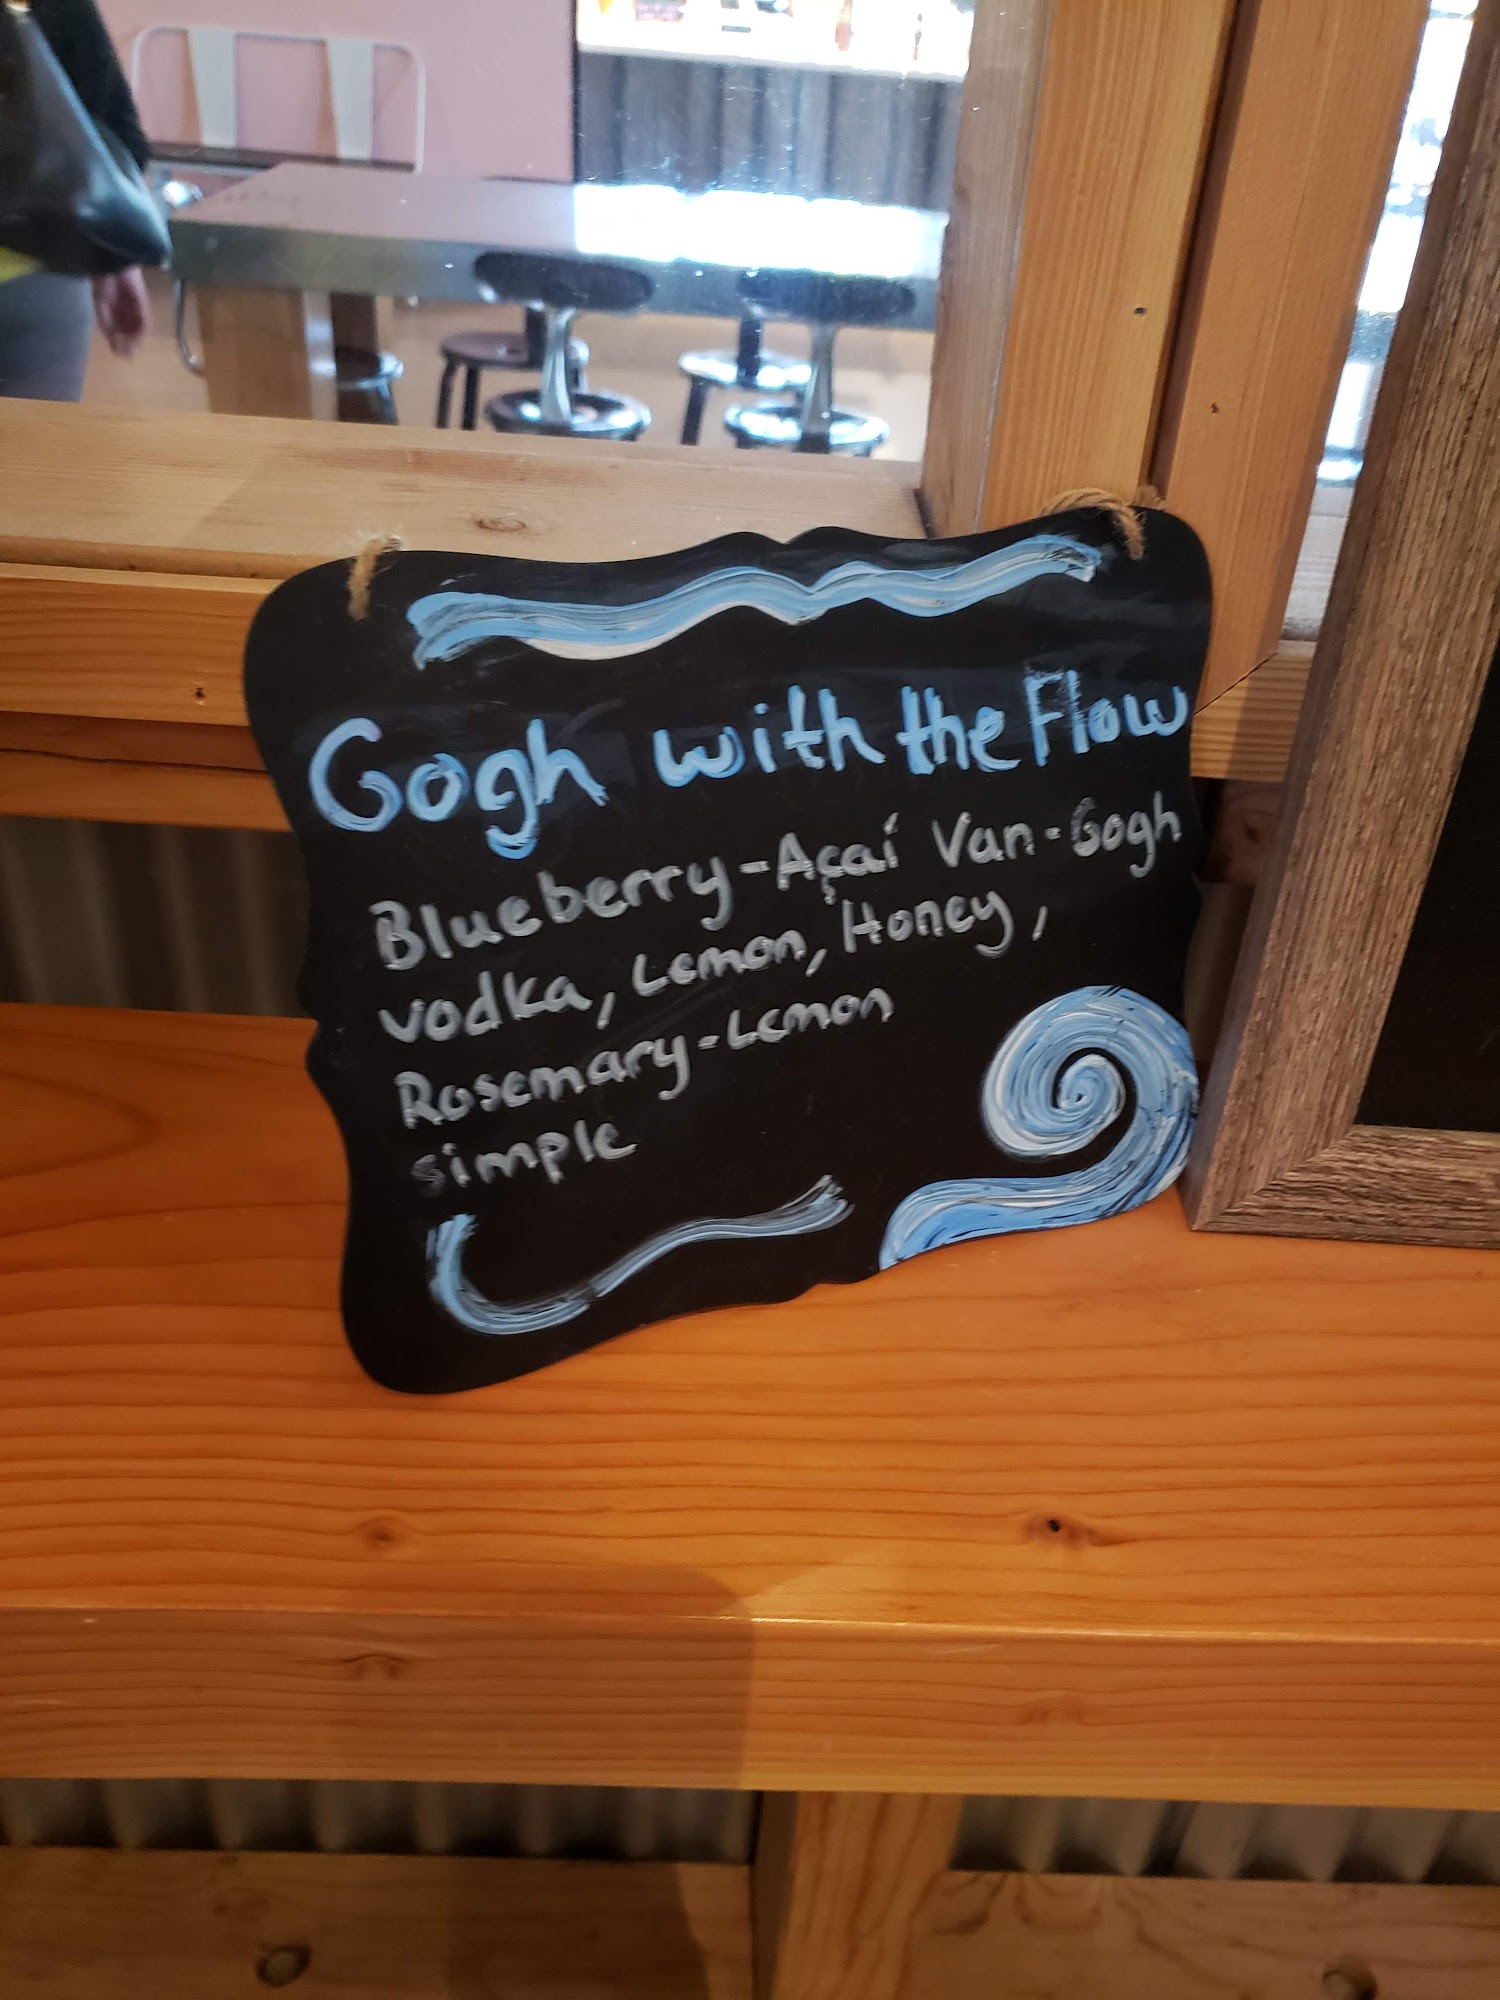 Gogh with the Flow
Blueberry-Açaí Van-Gogh
vodka, Lemon, Honey,
Rosemary-Lemon
simple